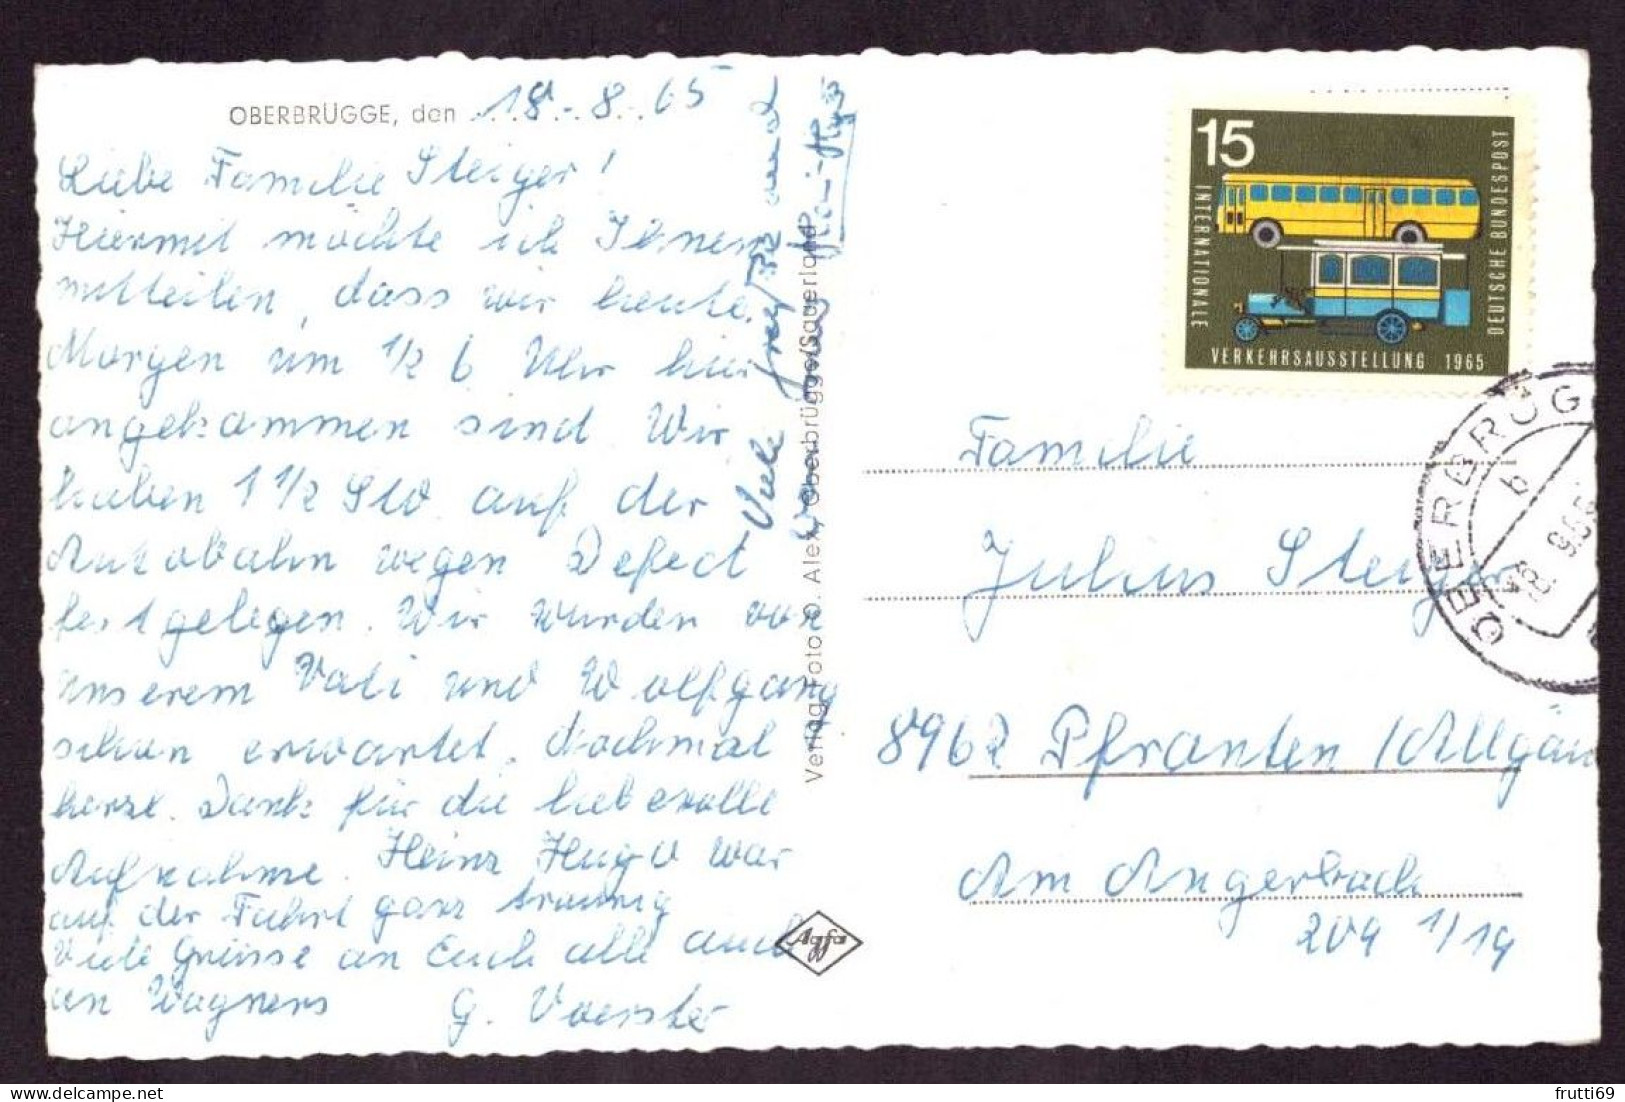 OBERBRÜGGE, den 18.8.65
Liebe Familie Steiger!
Hiermit möchte ich Ihnen
mitteilen, dass wir heute
Morgen um 1/2 6 Uhr hier
angekommen sind. Wir
haben 1 1/2 Std auf der
Autobahn wegen Defect
festgelegen. Wir wurden von
unserem Vati und Wolfgang
schon erwartet. Nochmal
herzl. Dank für die liebevolle
Aufnahme. Heinz Hugo war
auf der Fahrt ganz traurig
Viele Grüsse an Euch alle auch
an Wagners G. Voerster
Viele
Verlag Foto O. Alex, Oberbrügge/Sauerland
Agfa
15
INTERNATIONALE
VERKEHRSAUSSTELLUNG 1965
DEUTSCHE BUNDESPOST
OBERBRÜGG
b
18.
Familie
Julius Steiger
8962 Pfronten /Allgäu
Am Angerbach
209 1/19
frutti69